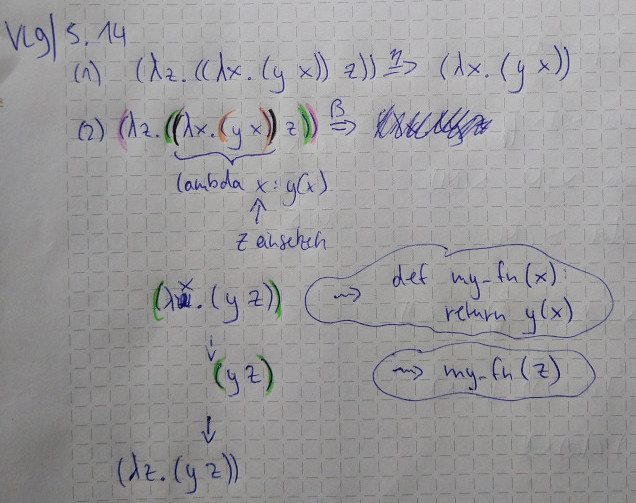 Vlg/ S. 14
(1) (λz.((λx.(y x)) z)) η⇒ (λx.(y x))
(2) (λz.((λx.(y x)) z)) β⇒
lambda x: y(x)
↑
z einsetzen
(λx.(y z)) ⇝ def my-fn(x):
return y(x)
↓
(y z) ⇝ my-fn(z)
↓
(λz.(y z))